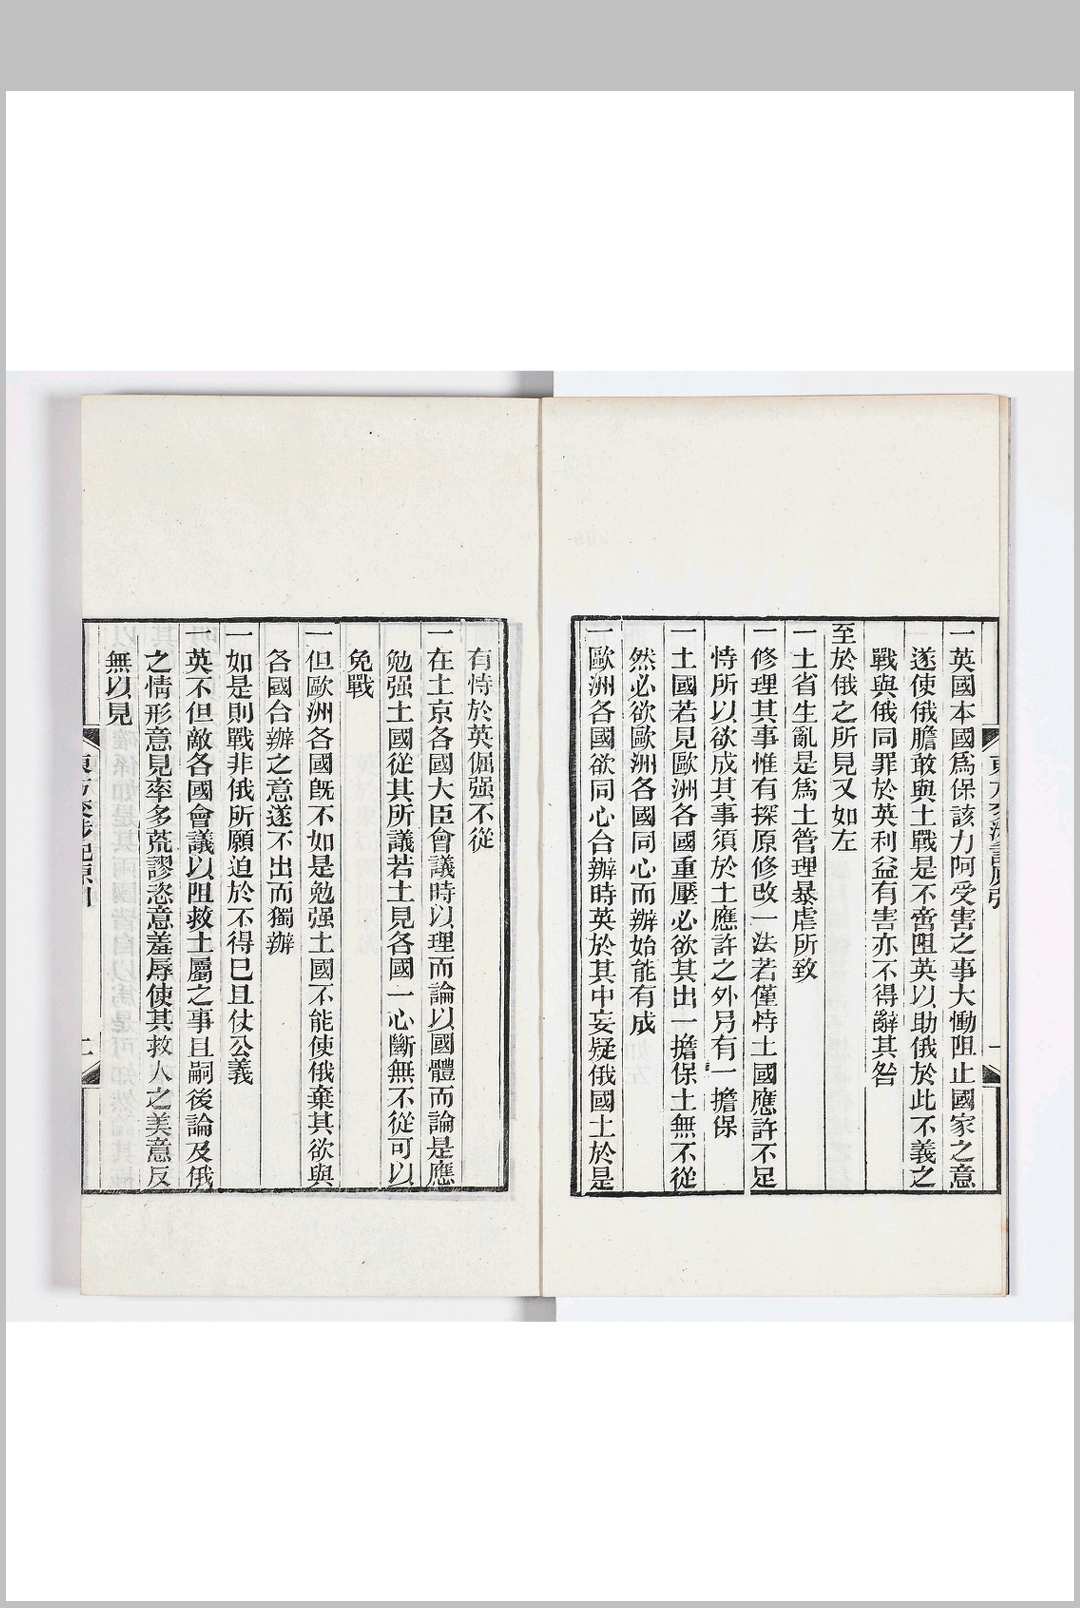 一英國本國爲保該力阿受害之事大慟阻止國家之意
遂使俄膽敢與土戰是不啻阻英以助俄於此不義之
戰與俄同罪於英利益有害亦不得辭其咎
至於俄之所見又如左
一土省生亂是爲土管理暴虐所致
一修理其事惟有探原修改一法若僅恃土國應許不足
恃所以欲成其事須於土應許之外另有一擔保
一土國若見歐洲各國重壓必欲其出一擔保土無不從
然必欲歐洲各國同心而辦始能有成
一歐洲各國欲同心合辦時英於其中妄疑俄國土於是
有恃於英倔强不從
一在土京各國大臣會議時以理而論以國體而論是應
勉强土國從其所議若土見各國一心斷無不從可以
免戰
一但歐洲各國旣不如是勉强土國不能使俄棄其欲與
各國合辦之意遂不出而獨辦
一如是則戰非俄所願迫於不得已且仗公義
一英不但敵各國會議以阻救土屬之事且嗣後論及俄
之情形意見率多荒謬恣意羞辱使其救人之美意反
無以見
二